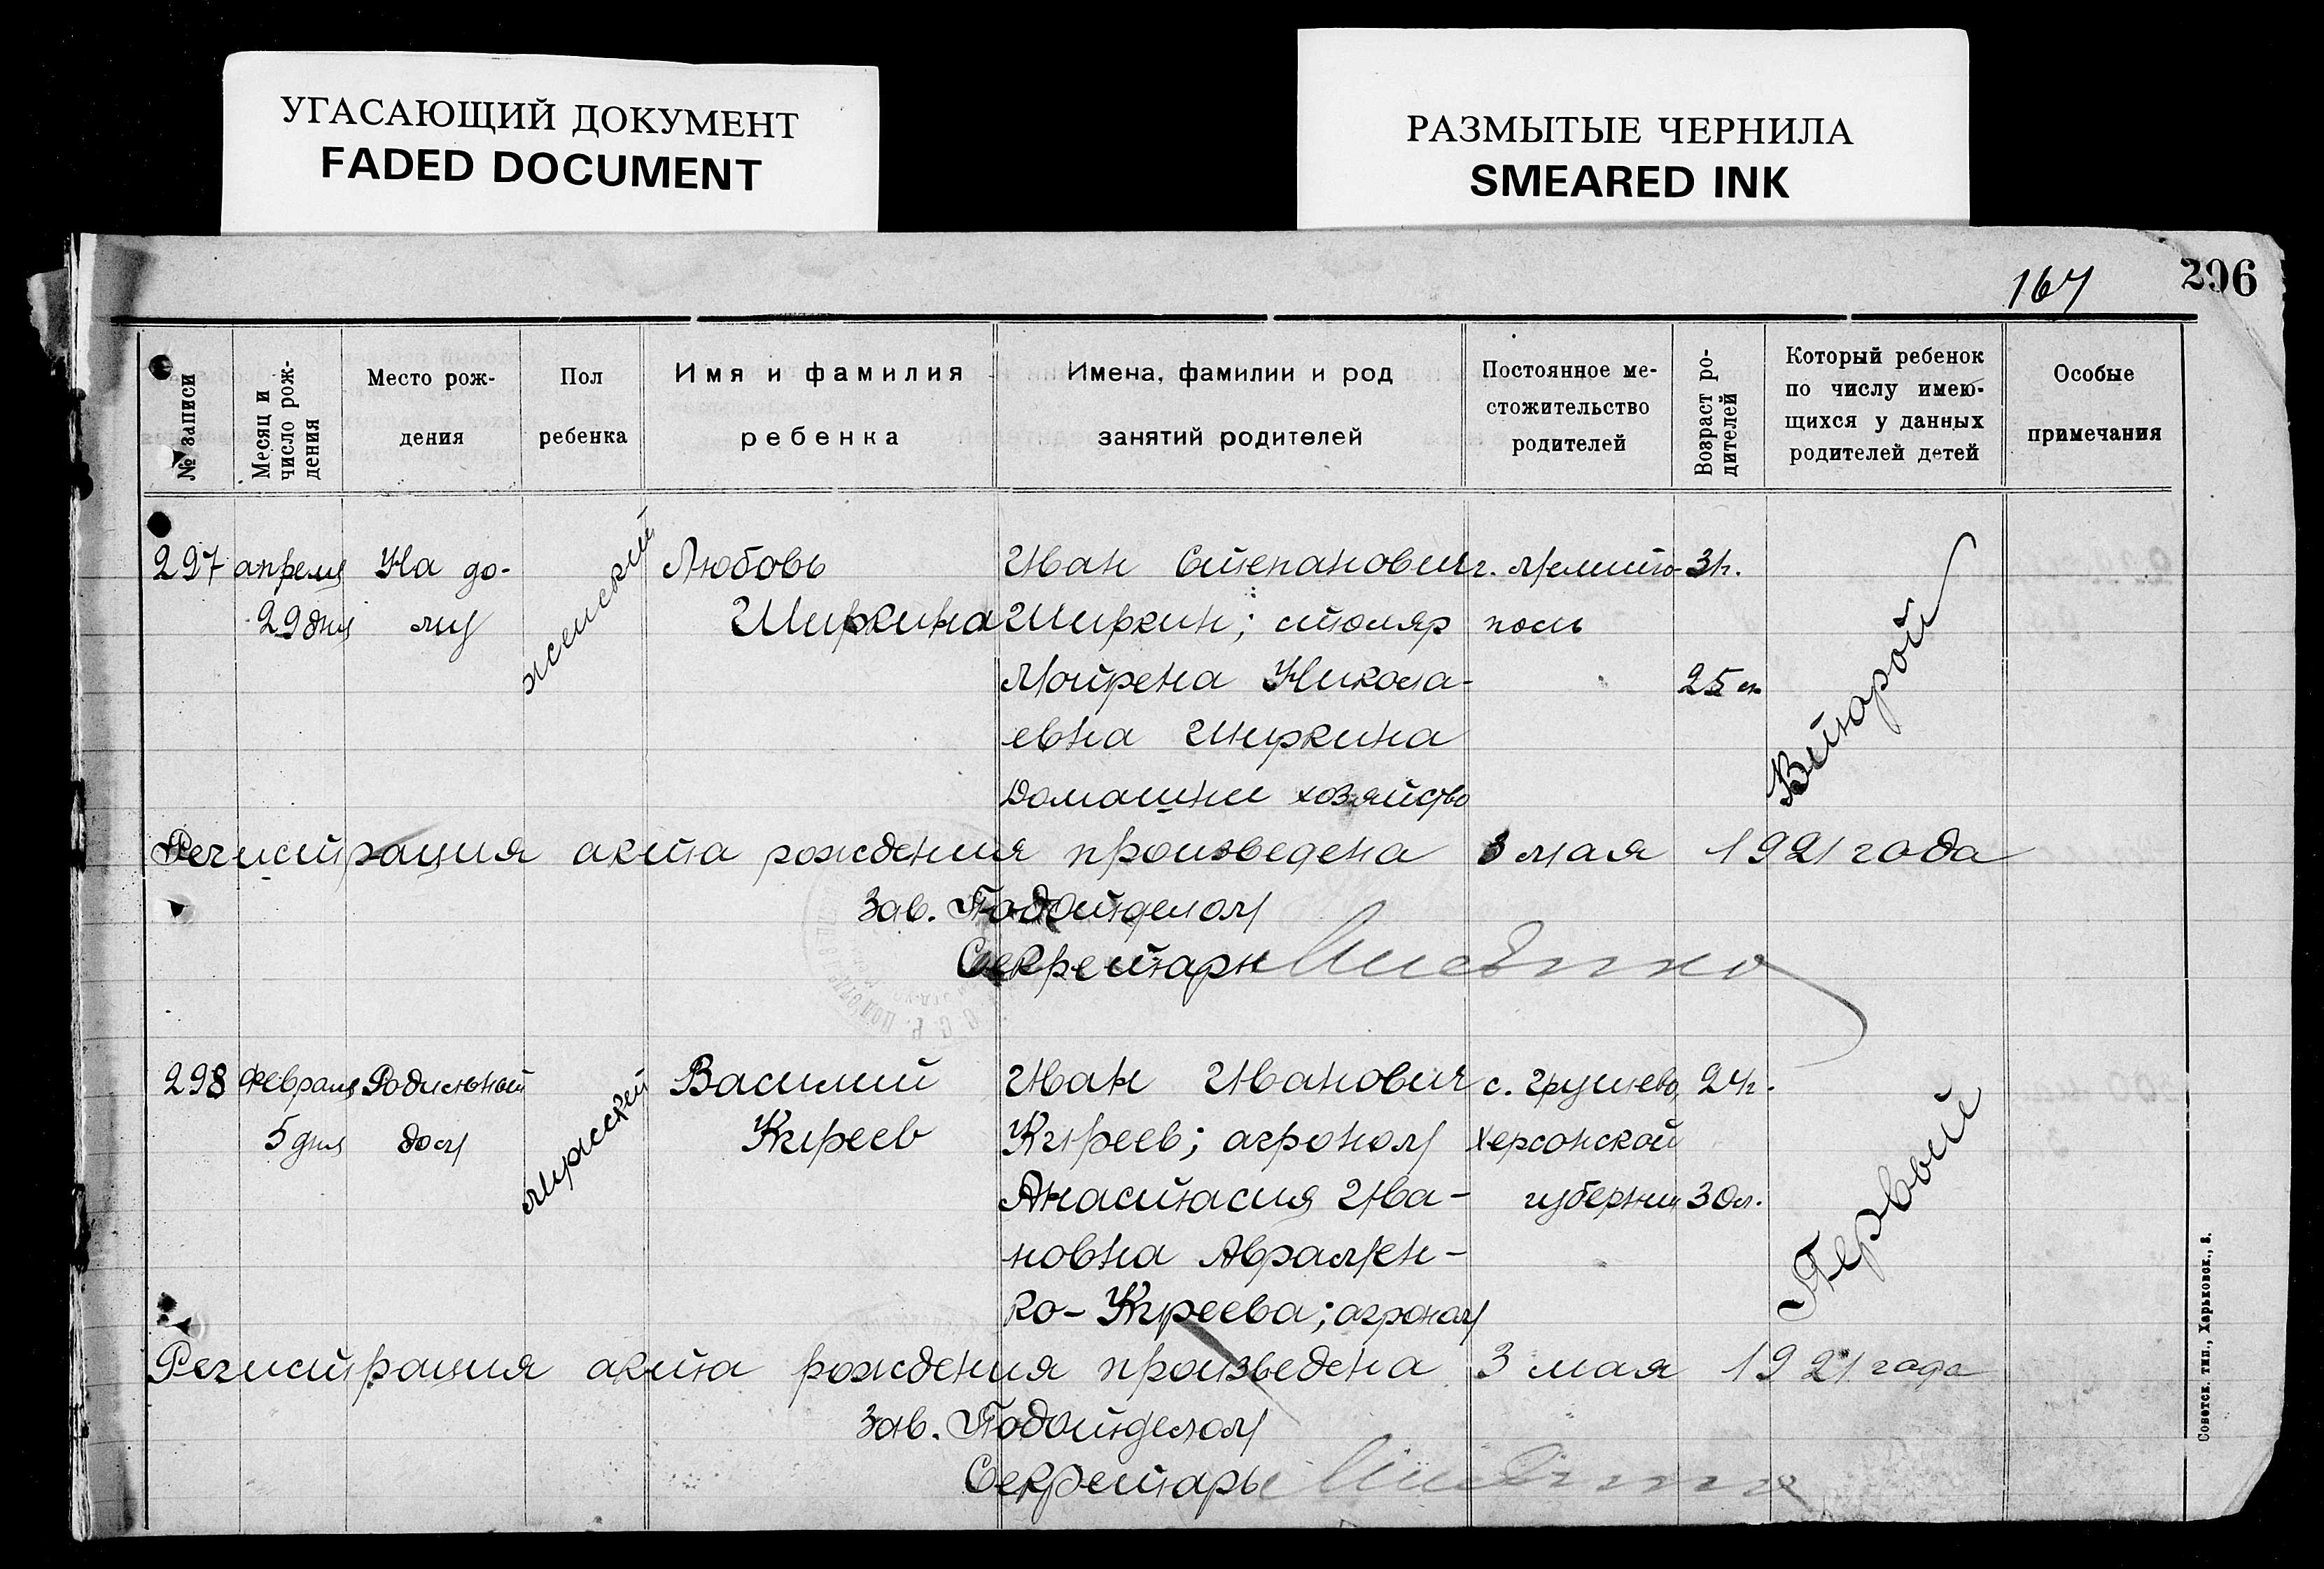 УГАСАЮЩИЙ ДОКУМЕНТ
FADED DOCUMENT
РАЗМЫТЫЕ ЧЕРНИЛА
SMEARED INK
167
296
№ записи
Месяц и
число рож-
дения
Место рож-
дения
Пол
ребенка
Имя и фамилия
ребенка
Имена, фамилии и род
занятий родителей
Постоянное ме-
стожительство
родителей
Возраст ро-
дителей
Который ребенок
по числу имею-
щихся у данных
родителей детей
Особые
примечания
297
апреля
29 дня
На до-
му
женский
Любовь
Ширкина
Иван Степанович
Ширкин; столяр
Мотрена Никола-
евна Ширкина
Домашнее хозяйство
г. Мелито-
поль
31г.
25 л.
Второй
Регистрация акта рождения произведена 3 мая 1921 года
Зав. Подотделом
Секретарь
298
Февраля
5 дня
Родильный
дом
мужской
Василий
Киреев
Иван Иванович
Киреев; агроном
Анастасия Ива-
новна Авramен-
ко-Киреева; агроном
с. Грушево,
Херсонской
губернии
24г.
30л.
Первый
Регистрация акта рождения произведена 3 мая 1921 года
Зав. Подотделом
Секретарь
Советск. тип., Харьковск., 8.